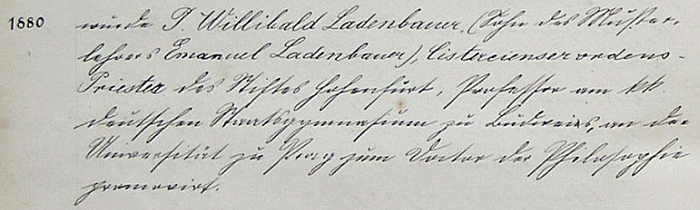 1880 wurde P. Willibald Ladenbauer, (Sohn des Muster-
lehrers Emanuel Ladenbauer), Cistercienserordens-
Priester des Stiftes Hohenfurt, Professor am kk.
deutschen Staatsgymnasium zu Budweis, an der
Universität zu Prag zum Doctor der Philosophie
promovirt.